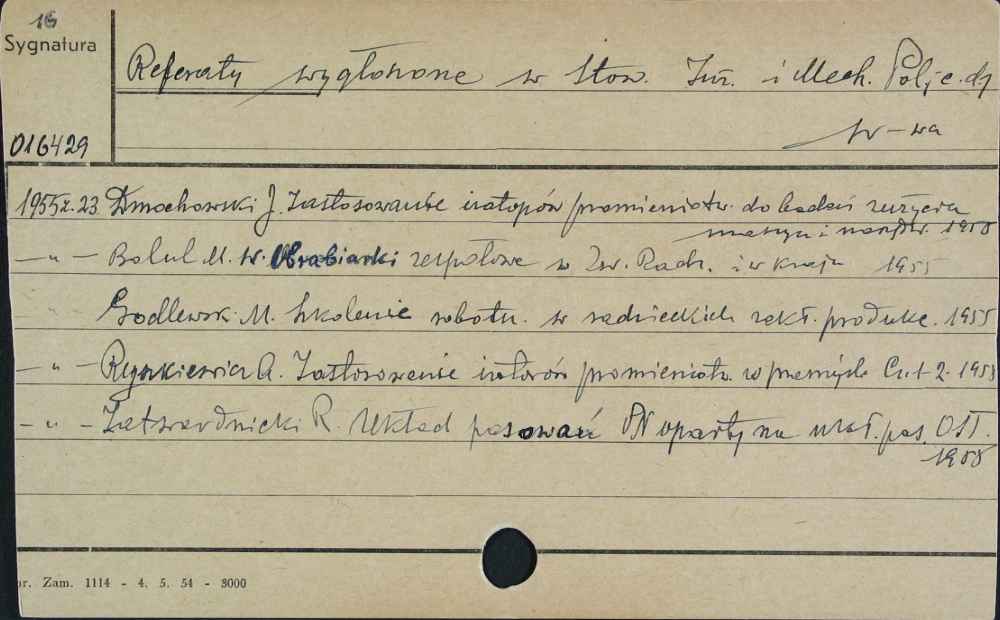 16
Sygnatura
Referaty wygłoszone w Stow. Inż. i Mech. Pols
W-wa
016429
1955r. 23. Dmochowski J. Zastosowanie izotopów promieniotw. do badań zużycia
maszyn i narzędzi. 1955
— „ — Bolul M. W. Obrabiarki zespołowe w Zw. Radz. i w kraju 1955
Godlewski M. Szkolenie robotn. w radzieckich zakł. produkc. 1955
— „ — Rynkiewicz A. Zastosowanie izotopów promieniotw. w przemyśle Cz. 1-2. 1955
— „ — Zatwardnicki R. Układ pasowań PN oparty na ukł. pas. OST.
1955
nr. Zam. 1114 - 4. 5. 54 - 8000